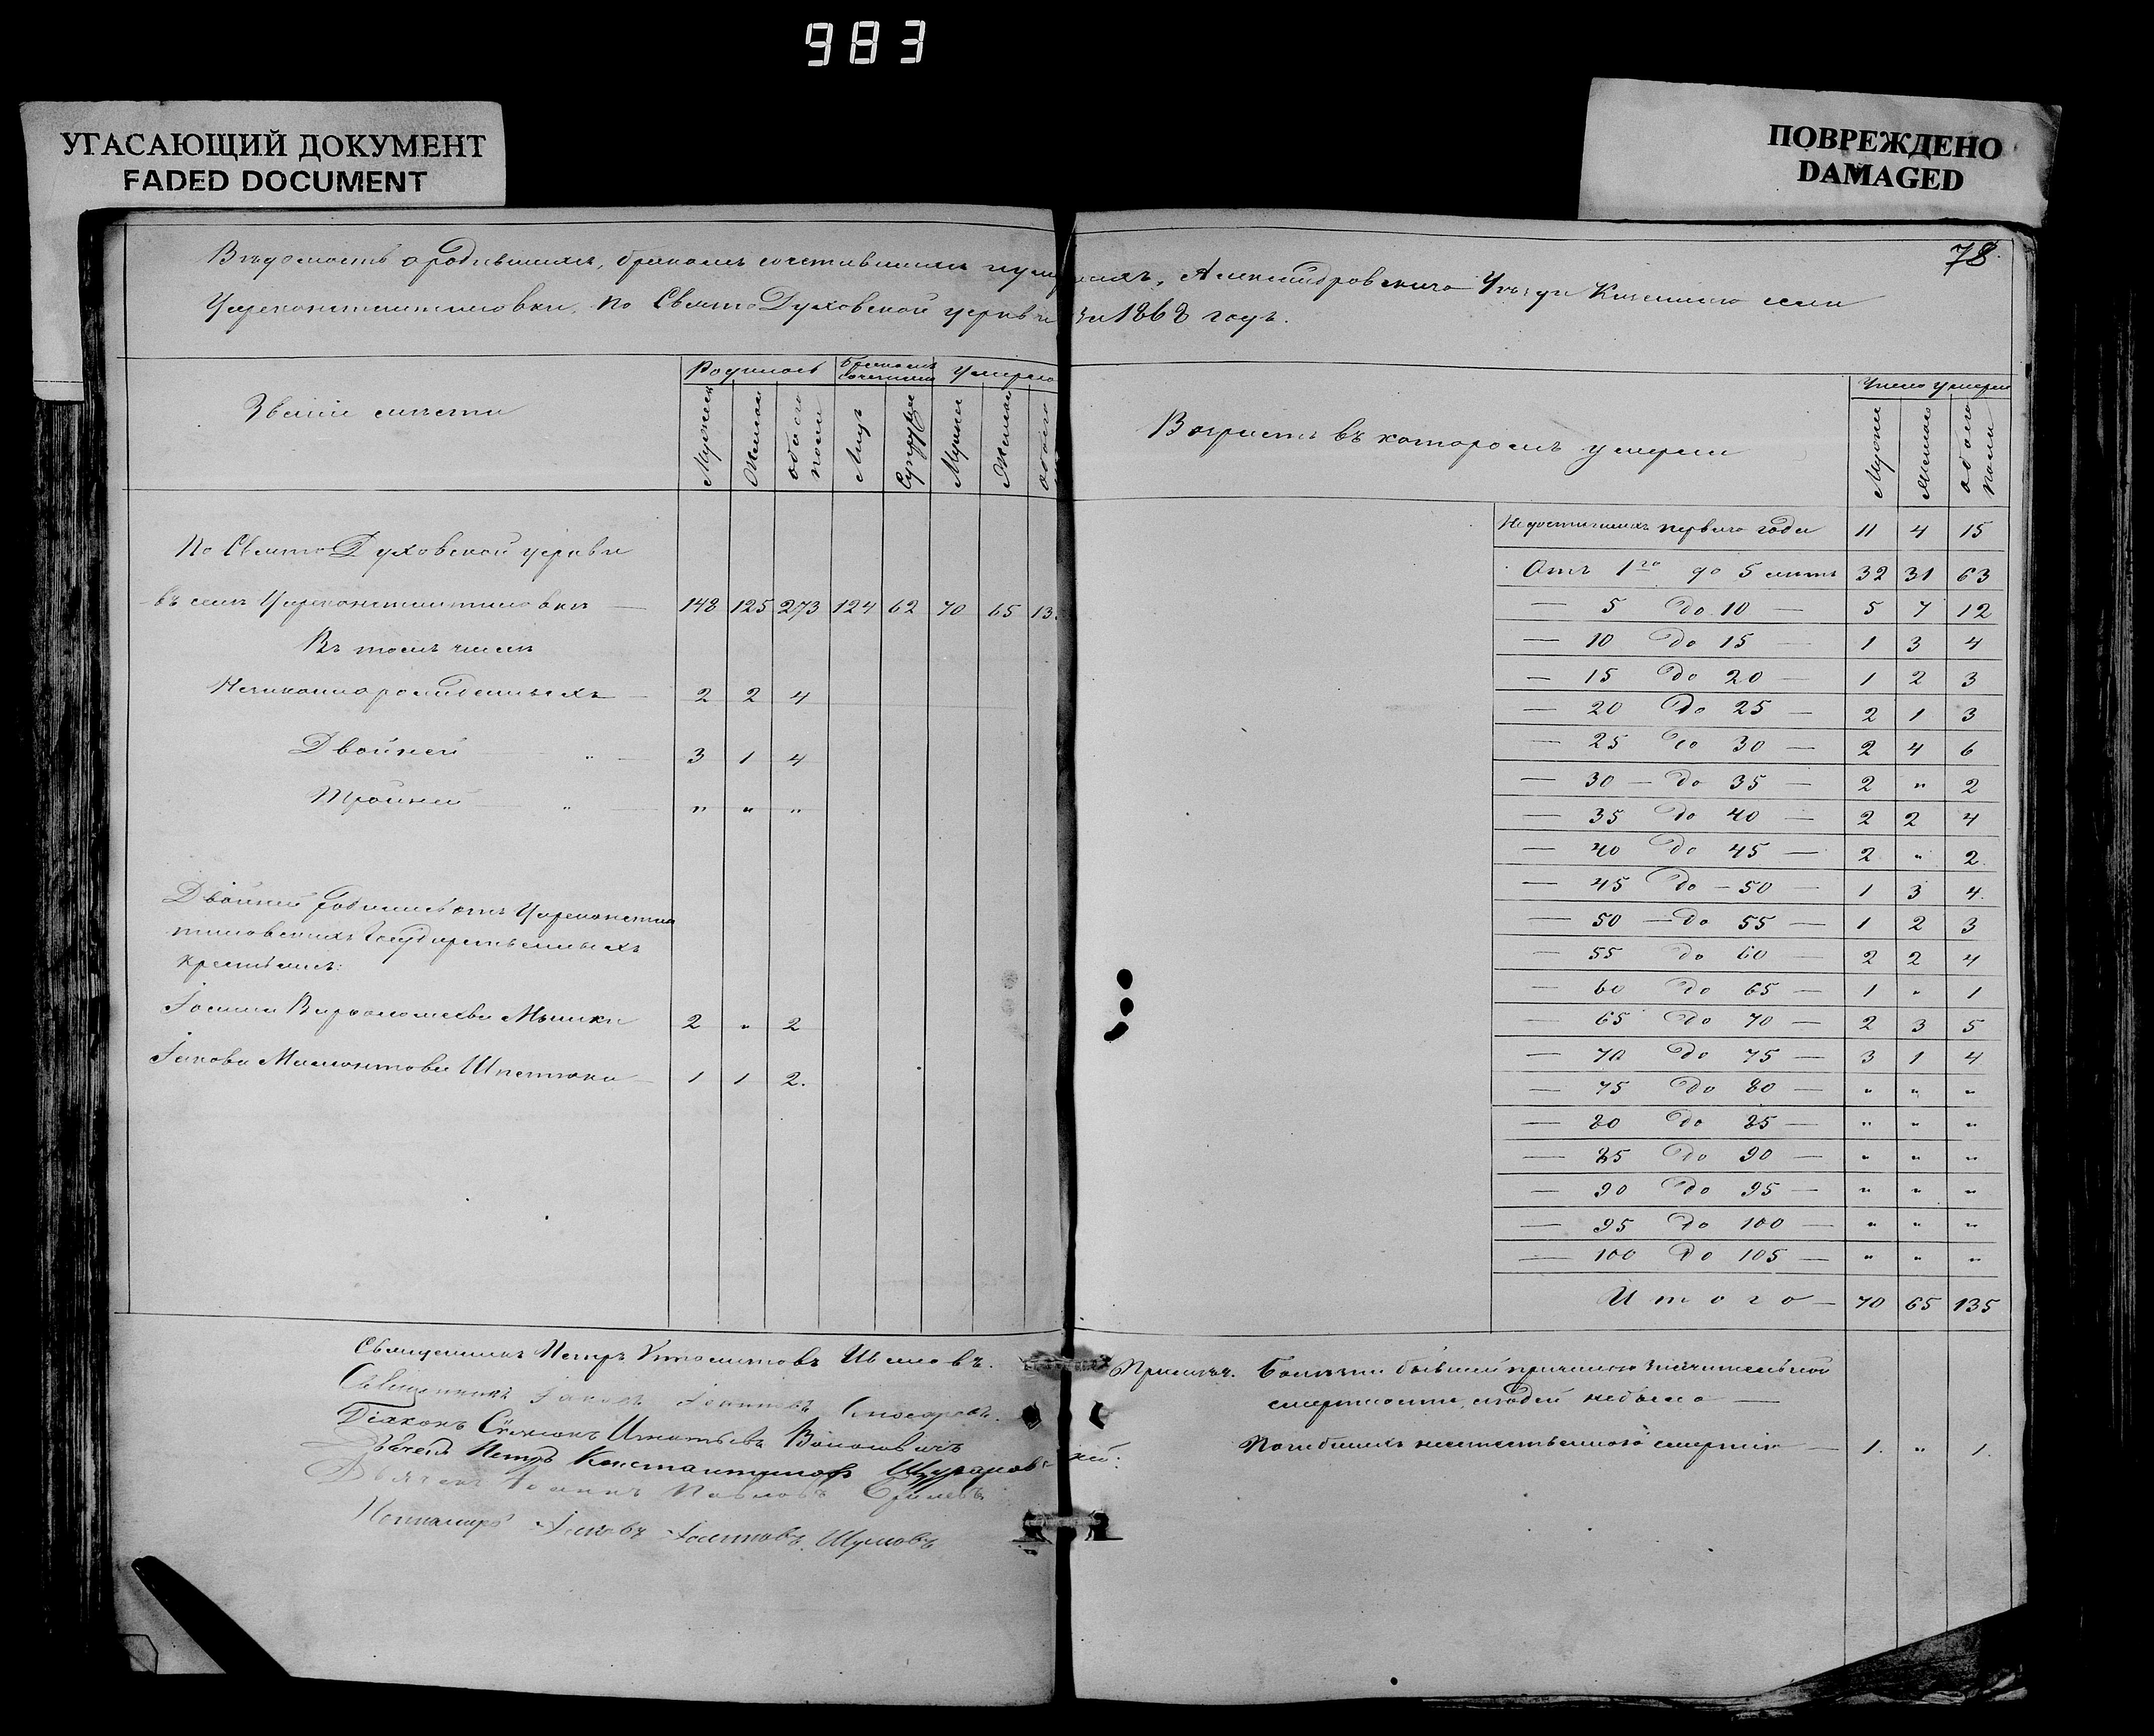 983
УГАСАЮЩИЙ ДОКУМЕНТ
FADED DOCUMENT
ПОВРЕЖДЕНО
DAMAGED
78.
Вѣдомость о родившихся, бракомъ сочетавшихся и умершихъ, Александровскаго Уѣзда Казеннаго села
Цареконстантиновки, по СвятоДуховской церкви за 1868 годъ.
Званіе мѣста
Родилось
Бракомъ сочетано
Умерло
Мужеск
Женска
обоего пола
Лицъ
Супруж
Мужеск
Женска
обоего
По СвятоДуховской церкви
въ селѣ Цареконстантиновкѣ — 148 125 273 124 62 70 65 135
Въ томъ числѣ
Незаконнорожденныхъ — 2 2 4
Двойней — „ — 3 1 4
Тройней — „ — „ „ „
Двойней родилось отъ Цареконстан
тиновскихъ Государственныхъ
крестьянъ:
Іоанна Варфоломеева Мышки 2 „ 2
Іакова Мамонтова Шпетока — 1 1 2.
Священникъ Петръ Ивановъ.
Священникъ Іаковъ Іоанновъ
Діаконъ Симеонъ Игнатьевъ Волосевичъ
Дьячекъ Петръ Константиновъ
Дьячекъ Іоаннъ Павловъ
Пономарь Іаковъ Шумовъ
Возрастъ въ которомъ умерли
Число умерш
Мужск
Женска
обоего пола
Недостигшихъ перваго года 11 4 15
Отъ 1го до 5 лѣтъ 32 31 63
— 5 до 10 — 5 7 12
— 10 до 15 — 1 3 4
— 15 до 20 — 1 2 3
— 20 до 25 — 2 1 3
— 25 до 30 — 2 4 6
— 30 — до 35 — 2 „ 2
— 35 до 40 — 2 2 4
— 40 до 45 — 2 „ 2
— 45 до — 50 — 1 3 4
— 50 — до 55 — 1 2 3
— 55 до 60 — 2 2 4
— 60 до 65 — 1 „ 1
— 65 до 70 — 2 3 5
— 70 до 75 — 3 1 4
— 75 до 80 — „ „ „
— 80 до 85 — „ „ „
— 85 до 90 — „ „ „
— 90 до 95 — „ „ „
— 95 до 100 — „ „ „
— 100 до 105 — „ „ „
Итого — 70 65 135
Примѣч. Болѣзни бывшей причиною значительной
смертности людей небыло —
Погибшихъ неестественною смертію — 1. „ 1.